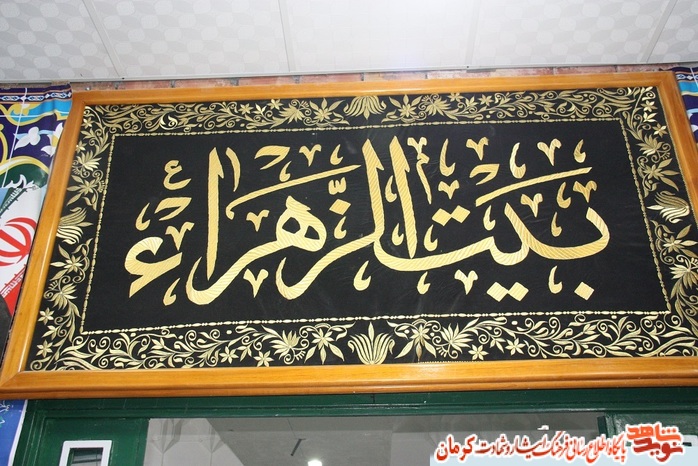 بیت الزهراء
پایگاه اطلاع رسانی فرهنگ ایثار و شهادت کرمان
نوید شاهد